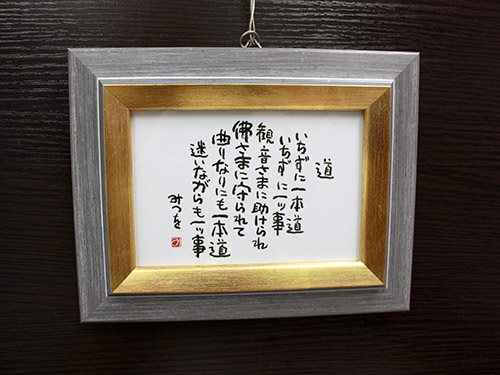 道
いちずに一本道
いちずに一ッ事
観音さまに助けられ
佛さまに守られて
曲りなりにも一本道
迷いながらも一ッ事
みつを